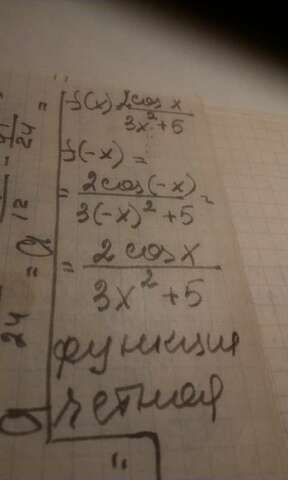 f(x) 2cos x / 3x² + 5
f(-x) =
= 2cos(-x) / 3(-x)² + 5 =
= 2cosx / 3x² + 5
функция
четная
24
=
12
24 =